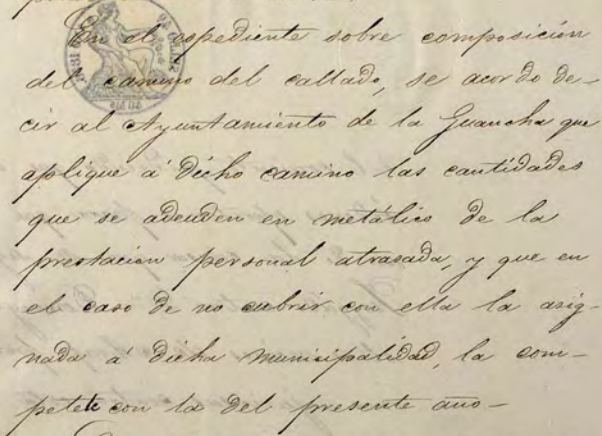 En el espediente sobre composición
del camino del callado, se acordo de-
cir al Ayuntamiento de la Guancha que
aplique á dicho camino las cantidades
que se adeuden en metálico de la
prestacion personal atrasada, y que en
el caso de no cubrir con ella la asig-
nada á dicha municipalidad, la com-
pete con la del presente año-